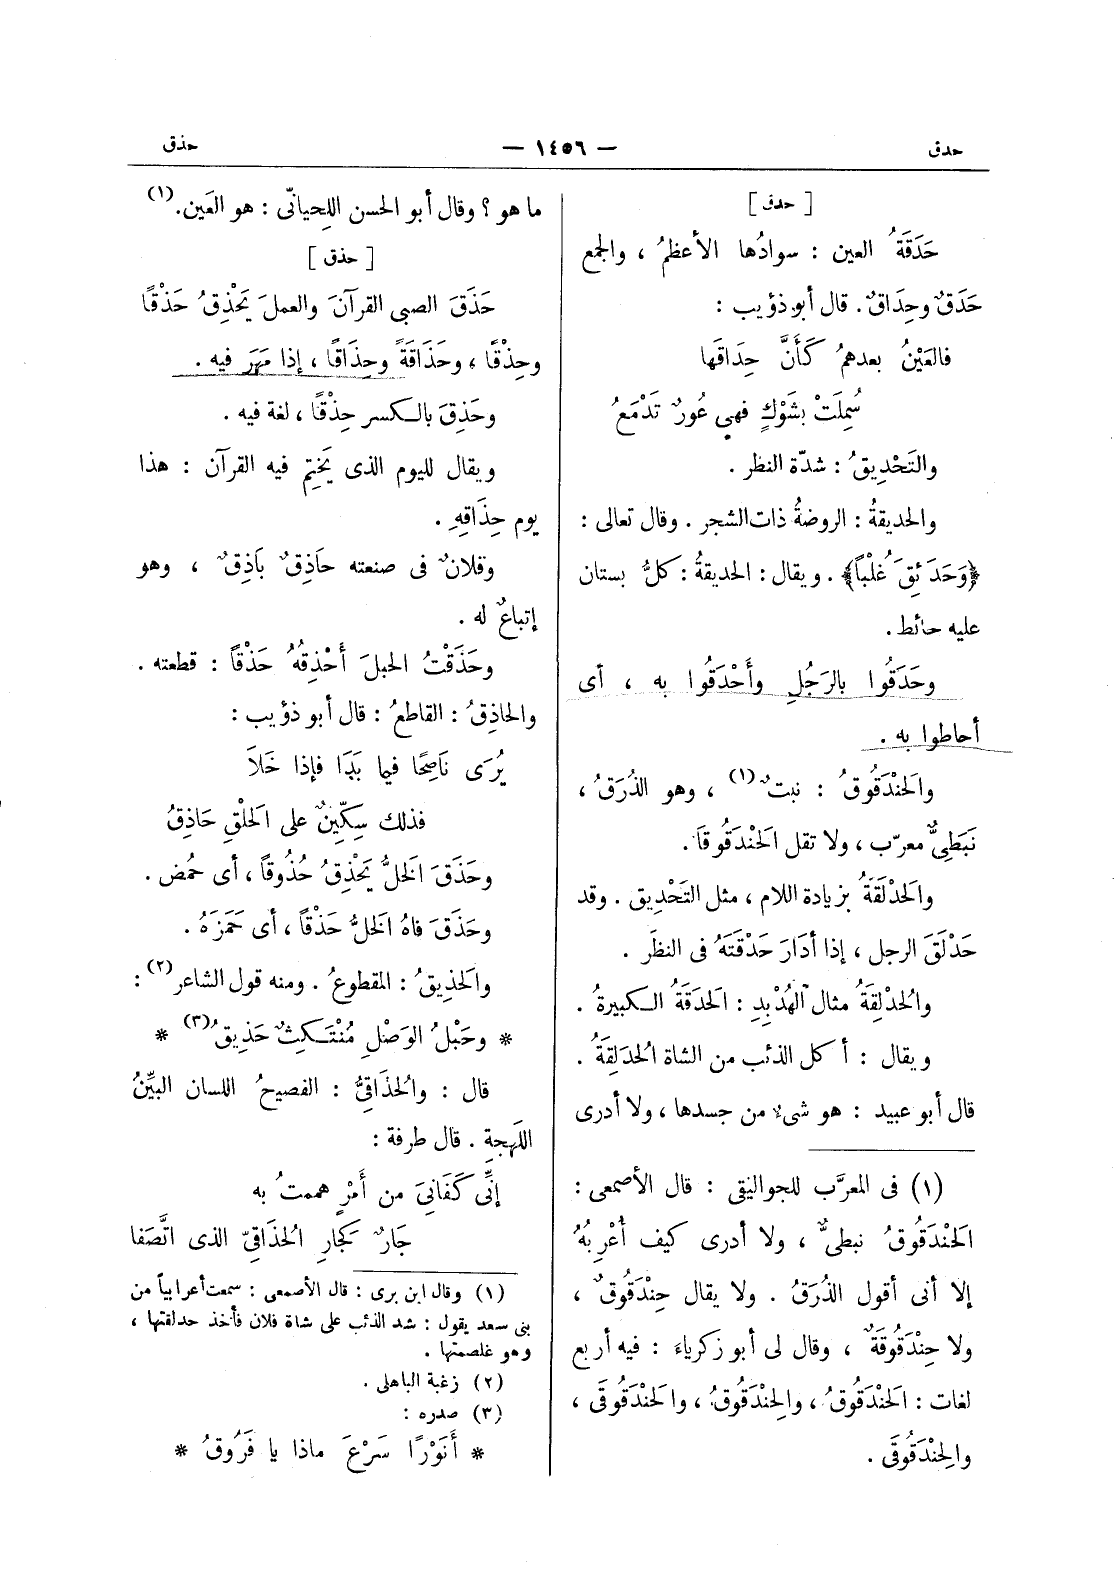 حدق
— ١٤٥٦ —
حذق
[ حدق ]
حَدَقَةُ العين : سوادُها الأعظمُ ، والجمع
حَدَقٌ وحِدَاقٌ. قال أبو ذؤيب :
فالعَيْنُ بعدهمُ كَأَنَّ حِدَاقَها
سُمِلَتْ بشَوْكٍ فهي عُورٌ تَدْمَعُ
والتَحْدِيقُ : شدّة النظر .
والحديقةُ : الروضةُ ذات الشجر . وقال تعالى :
﴿وَحَدَئِقَ غُلْباً﴾ . ويقال : الحديقةُ : كلُّ بستان
عليه حائط.
وحَدَقُوا بالرَجُلِ وأَحْدَقُوا به ، أى
أحاطوا به .
والحَنْدَقُوقُ : نبتٌ (١) ، وهو الذُرَقُ ،
نَبَطِىٌّ معرّب ، ولا تقل الحَنْدَقُوقَا.
والحَدْلَقَةُ بزيادة اللام ، مثل التَحْدِيق . وقد
حَدْلَقَ الرجل ، إذا أدَارَ حَدْقَتَهُ فى النظَر .
والحُدَلِقَةُ مثال الهُدَبِدِ : الحَدَقَةُ الكبيرةُ .
ويقال : أكل الذئب من الشاة الحُدَلِقَةُ .
قال أبو عبيد : هو شىء من جسدها ، ولا أدرى
(١) فى المعرَّب للجواليقى : قال الأصمعى :
الحَنْدَقُوقُ نبطىٌّ ، ولا أدرى كيف أُعْرِبُهُ
إلا أنى أقول الذُرَقُ . ولا يقال حِنْدَقُوقٌ ،
ولا حِنْدَقُوقَةٌ ، وقال لى أبو زكرياء : فيه أربع
لغات : الحَنْدَقُوقُ ، والحِنْدَقُوقُ ، والحَنْدَقُوقَى ،
والحِنْدَقُوقَى .
ما هو ؟ وقال أبو الحسن اللِحيانّى : هو العَين.(١)
[ حذق ]
حَذَقَ الصبى القرآنَ والعملَ يَحْذِقُ حَذْقًا
وحِذْقًا ، وحَذَاقَةً وحِذَاقًا ، إذا مَهَرَ فيه .
وحَذِقَ بالكسر حِذْقًا ، لغة فيه .
ويقال لليوم الذى يَختِم فيه القرآن : هذا
يوم حِذَاقِهِ .
وفلانٌ فى صنعته حَاذِقٌ بَاذِقٌ ، وهو
إتباعٌ له .
وحَذَقْتُ الحبلَ أَحْذِقُهُ حَذْقاً : قطعته .
والحاذِقُ : القاطعُ : قال أبو ذؤيب :
يُرَى نَاصِحًا فيما بَدَا فإذا خَلاَ
فذلك سِكِّينٌ على الحَلْقِ حَاذِقُ
وحَذَقَ الخَلُّ يَحْذِقُ حُذُوقاً ، أى حمُض .
وحَذَقَ فاهُ الخَلُّ حَذْقاً ، أى حَمَزَهُ .
والحَذِيقُ : المقطوعُ . ومنه قول الشاعر (٢) :
* وحَبْلُ الوَصْلِ مُنْتَكِثٌ حَذِيقُ(٣) *
قال : والحُذَاقِىُّ : الفصيحُ اللسان البيِّنُ
اللَهجةِ . قال طرفة :
إنِّى كَفَانِىَ من أَمْرٍ هممتُ به
جَارٌ كَجَارِ الحُذَاقِىّ الذى اتَّصَفَا
(١) وقال ابن برى : قال الأصمعى : سمعت أعرابياً من
بنى سعد يقول : شد الذئب على شاة فلان فأخذ حدلقتها ،
وهو غلصمتها .
(٢) زغبة الباهلى .
(٣) صدره :
* أَنَوْرًا سَرْعَ ماذا يا فَرُوقُ *